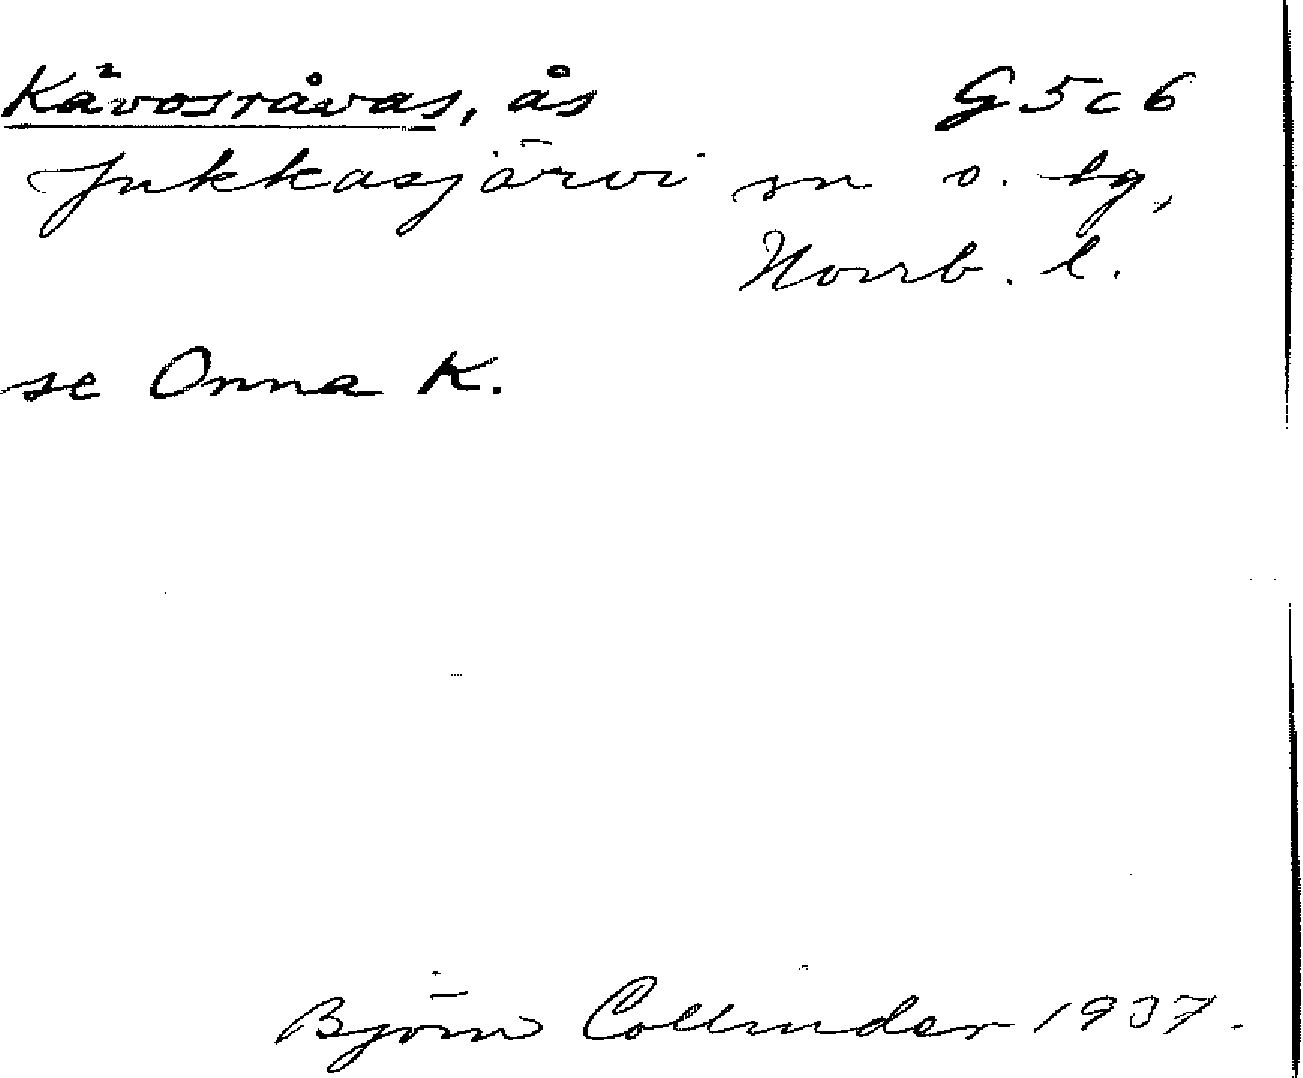 Kåvosråvas, ås G5c6
Jukkasjärvi sn o. tg,
Norrb. l.
se Onna K.
Björn Collinder 1937.